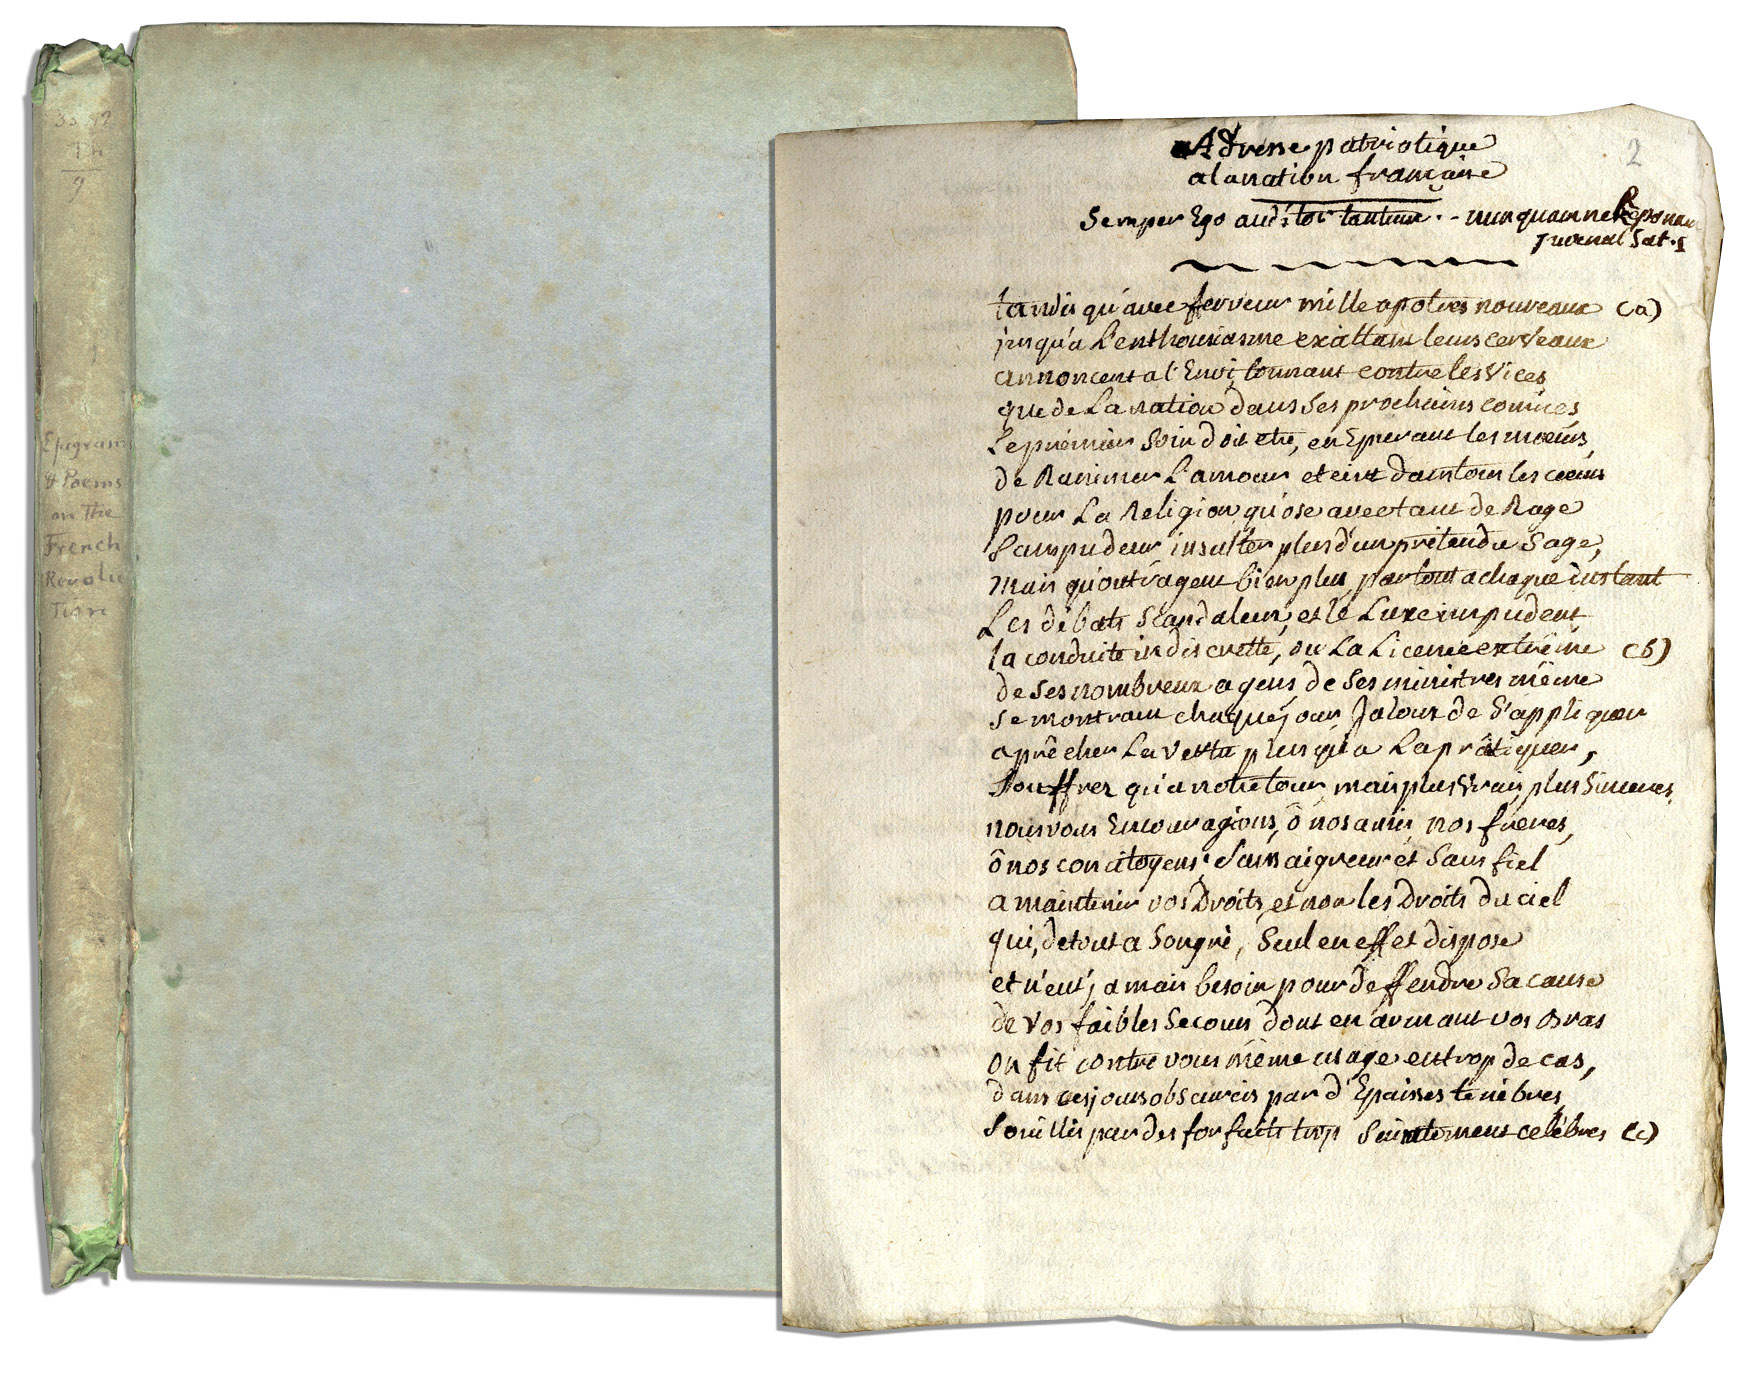 33 92
Th
9
Epigrams
& Poems
on The
French
Revolu
Tion
2
Adresse patriotique
a la nation françaîse
Semper Ego auditor tantum. - nunquamne Reponam
Juvenal Sat. 1
tandis qu'avec ferveur mille apotres nouveaux (a)
jusqu'a L'enthousiasme exaltant leurs cerveaux
annoncent a l'Envi, tonnant contre les Vices
que de La nation dans ses prochains comices
Le prémier Soin doit etre, en Epurant les moeurs,
de Ranimer L'amour eteint dans tous les coeurs
pour La Religion qu'ose avec tant de Rage
Sans pudeur insulter plus d'un prétendu Sage,
mais qu'outragent bien plus, partout a chaque instant
Les débats Scandaleux, et le Luxe impudent
la conduite indiscrette, ou La Licence extrême (b)
de Ses nombreux agens, de Ses ministres même
Se montrant chaque jour Jaloux de S'appliquer
a prêcher La vertu plus qu'a La pratiquer,
Souffrez qu'a notre tour, mais plus Vrais, plus Sinceres,
nous vous Encouragions, ô nos amis, nos freres,
ô nos concitoyens, Sans aigreur et Sans fiel
a maintenir vos Droits, et non les Droits du ciel
qui, de tout a Son gré, Seul en effet dispose
et n'eut jamais besoin pour deffendre Sa cause
de vos faibles Secours dont en armant vos Bras
on fit contre vous même usage en trop de cas,
dans ces jours obscurcis par d'Epaisses tenèbres,
Souillés par des forfaits trop Saintement celébres (c)